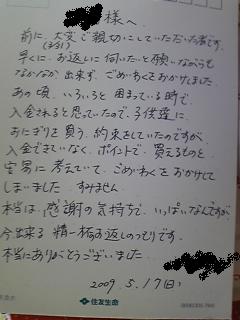 様へ
前に、大変ご親切にしていただいた者です。
早くに、お返しに伺いたいと願いながらも
なかなか出来ず、ごめいわくをおかけしました。
あの頃、いろいろと困まっている時で、
入金されると思っていたので、子供達に、
おにぎりを買う、約束をしていたのですが、
入金できていなく、ポイントで、買えるものと
安易に考えていて、ごめいわくをおかけして
しまいました すみません。
本当は、感謝の気持ちで、いっぱいなんですが、
今出来る精一杯のお返しのつもりです。
本当にありがとうございました。
2009. 5. 17(日)
住友生命